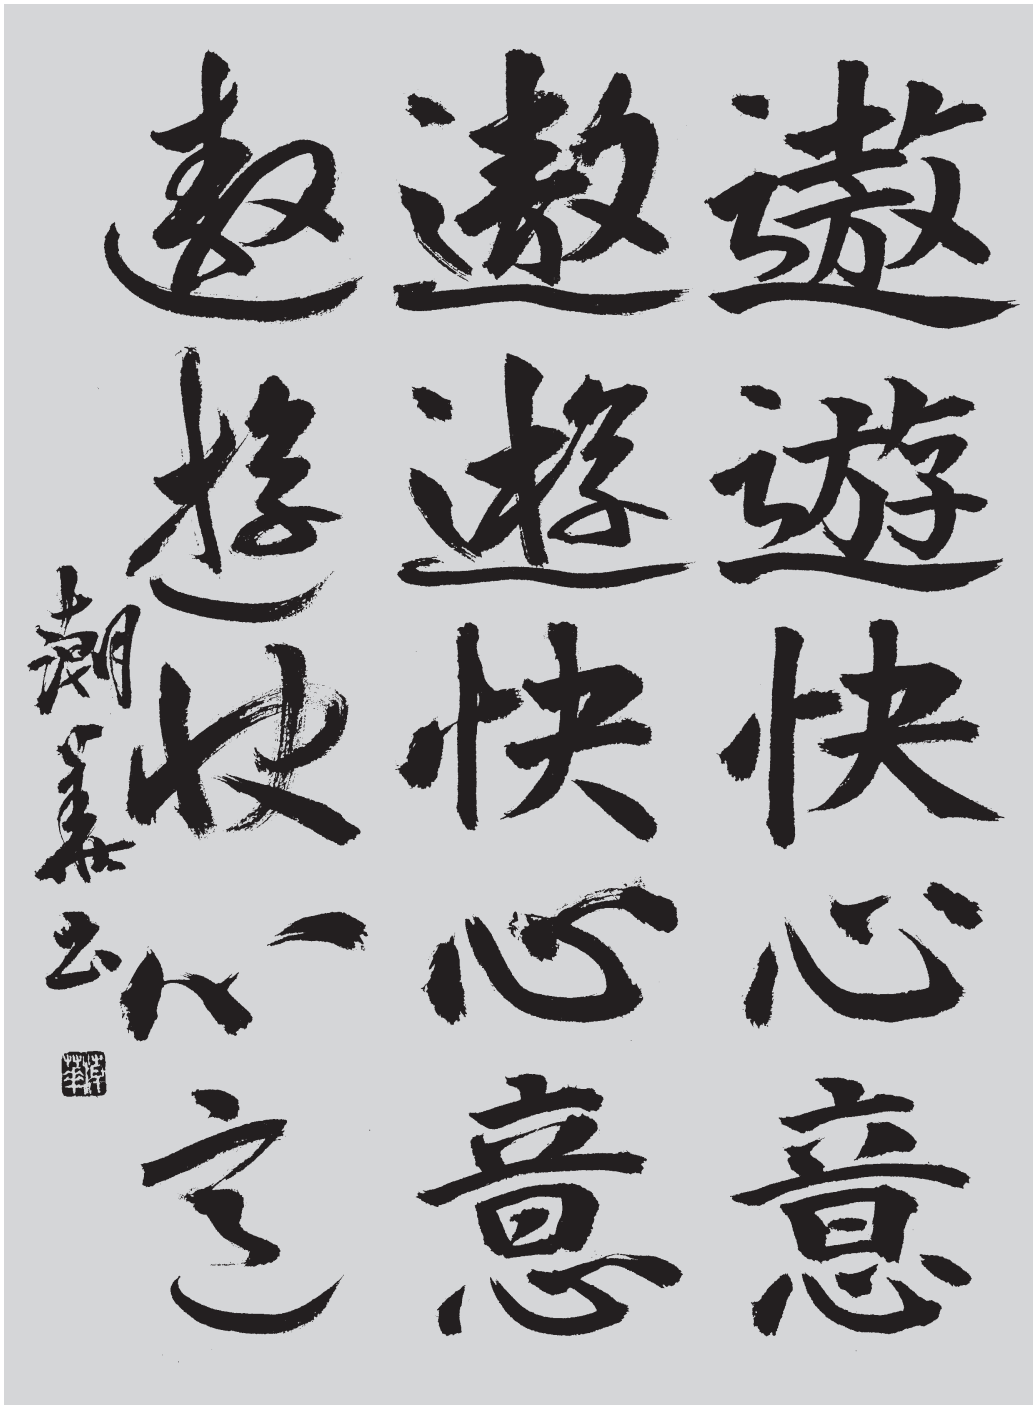 遨遊快心意
遨遊快心意
遨遊快心意
潮華書